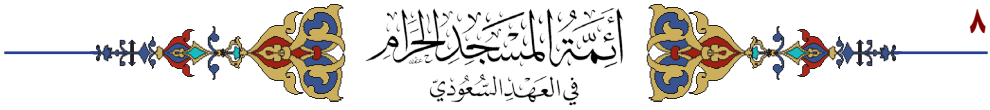 ٨
أَئِمَّةُ المَسْجِدِ الحَرَامِ
في العَهْدِ السُّعُودِيِّ